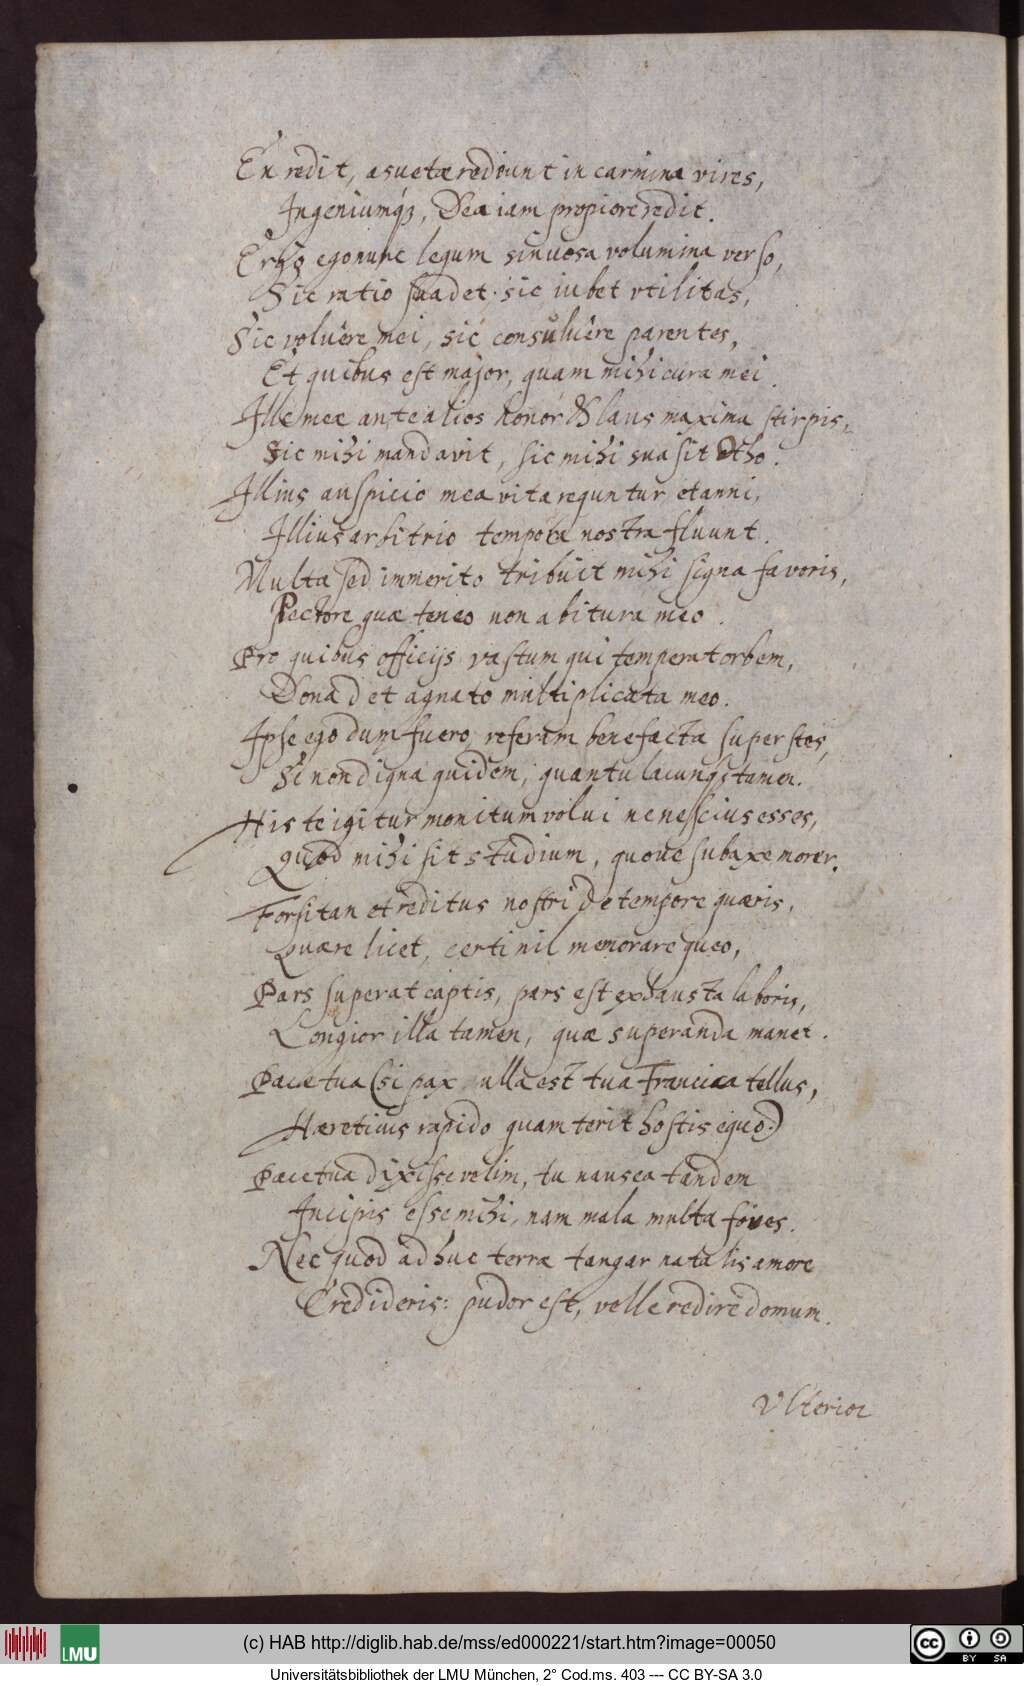 En redit, asuetæ redeunt in carmina vires,
Ingeniumq́з, Dea iam propiore redit.
Ergo ego nunc legum sinuosa volumina verso,
Sic ratio suadet. sic iubet vtilitas,
Sic voluêre mei, sic consuluêre parentes,
Et quibus est major, quam mihi cura mei.
Ille meæ ante alios honor & laus maxima stirpis,
Sic mihi mandavit, sic mihi suasit Otho.
Illius auspicio mea vita reguntur et anni,
Illius arbitrio tempora nostra fluunt.
Multa sed immerito tribuit mihi signa favoris,
Pectore quæ teneo non abitura meo.
Pro quibus officijs vastum qui temperat orbem,
Dona det agnato multiplicata meo.
Ipse ego dum fuero, referam benefacta superstes,
Si non digna quidem, quantulacunqs tamen.
His te igitur monitum volui ne nescius esses,
Quod mihi sit studium, quove sub axe morer.
Forsitan et reditus nostri de tempore quæris,
Quære licet, certi nil memorare queo,
Pars superat captis, pars est exhausta laboris,
Longior illa tamen, quæ superanda manet.
Pace tua (si pax ulla est tua Francica tellus,
Hæreticus rapido quam terit hostis equo.)
Pace tua dixisse velim, tu nausea tandem
Incipis esse mihi, nam mala multa foves.
Nec quod adhuc terræ tangar natalis amore
Credideris: pudor est, velle redire domum.
Vlterior
(c) HAB http://diglib.hab.de/mss/ed000221/start.htm?image=00050
LMU
cc BY SA
Universitätsbibliothek der LMU München, 2° Cod.ms. 403 --- CC BY-SA 3.0